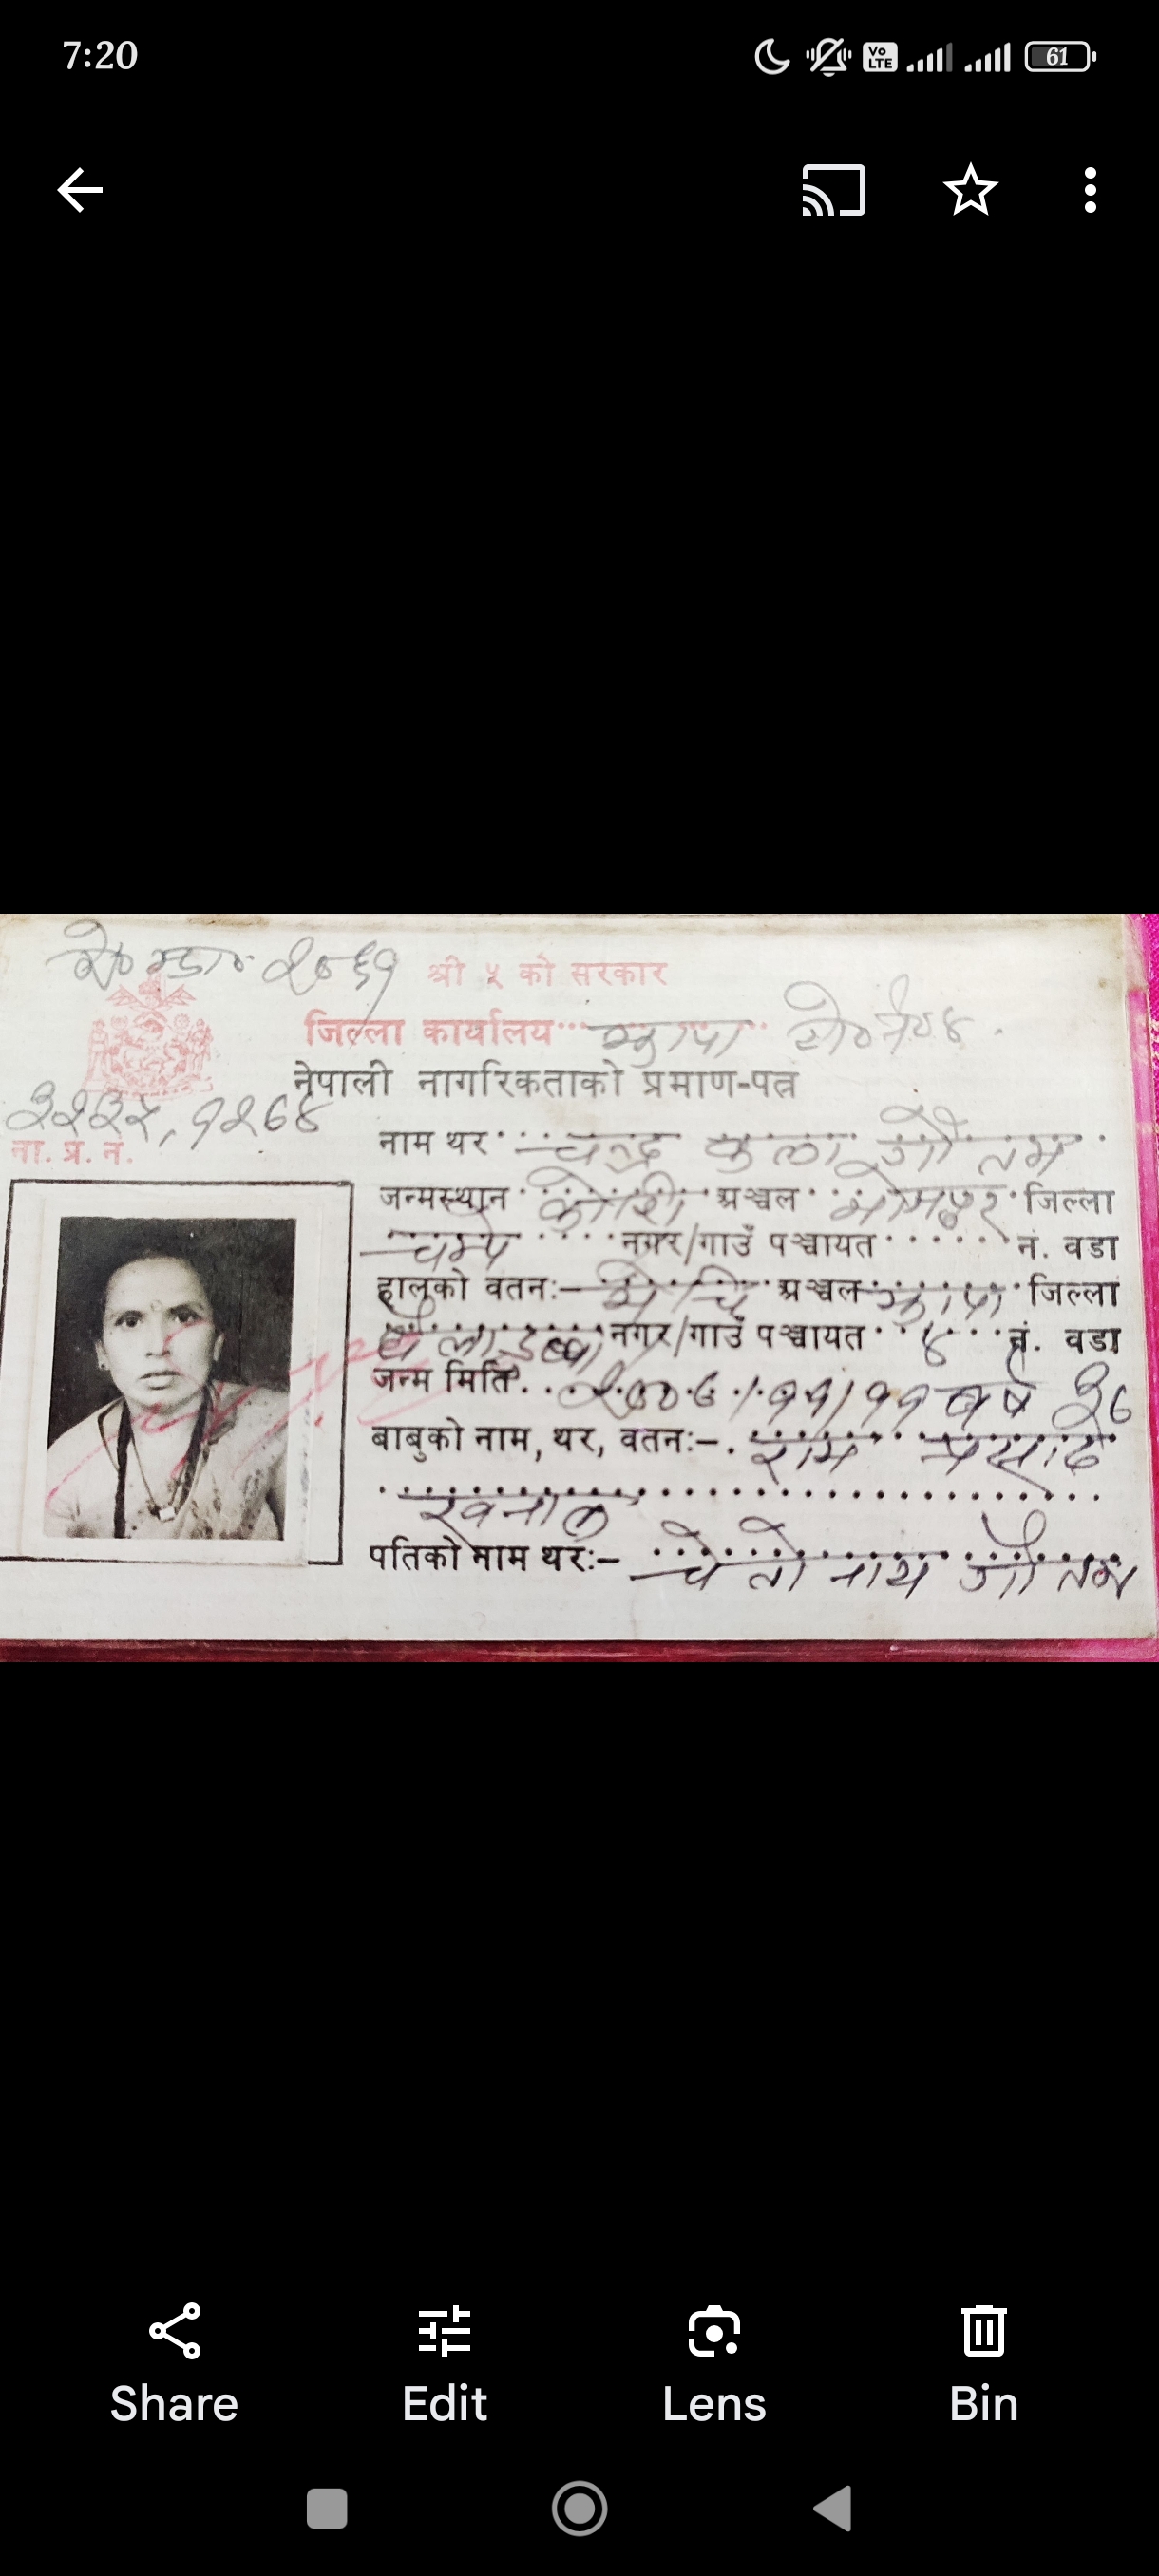 7:20
Vo LTE 61
श्री ५ को सरकार
जिल्ला कार्यालय झापा
नेपाली नागरिकताको प्रमाण-पत्र
ना. प्र. नं.
नाम थर चन्द्र कला गौतम
जन्मस्थान कोशी अञ्चल भोजपुर जिल्ला
नगर/गाउँ पञ्चायत नं. वडा
हालको वतन:- मेचि अञ्चल झापा जिल्ला
नगर/गाउँ पञ्चायत ४ नं. वडा
जन्म मिति. २००७/११/११ वर्ष ३७
बाबुको नाम, थर, वतन:- राम प्रसाद
खनाल
पतिको नाम थर:- चेतो नाथ गौतम
Share Edit Lens Bin